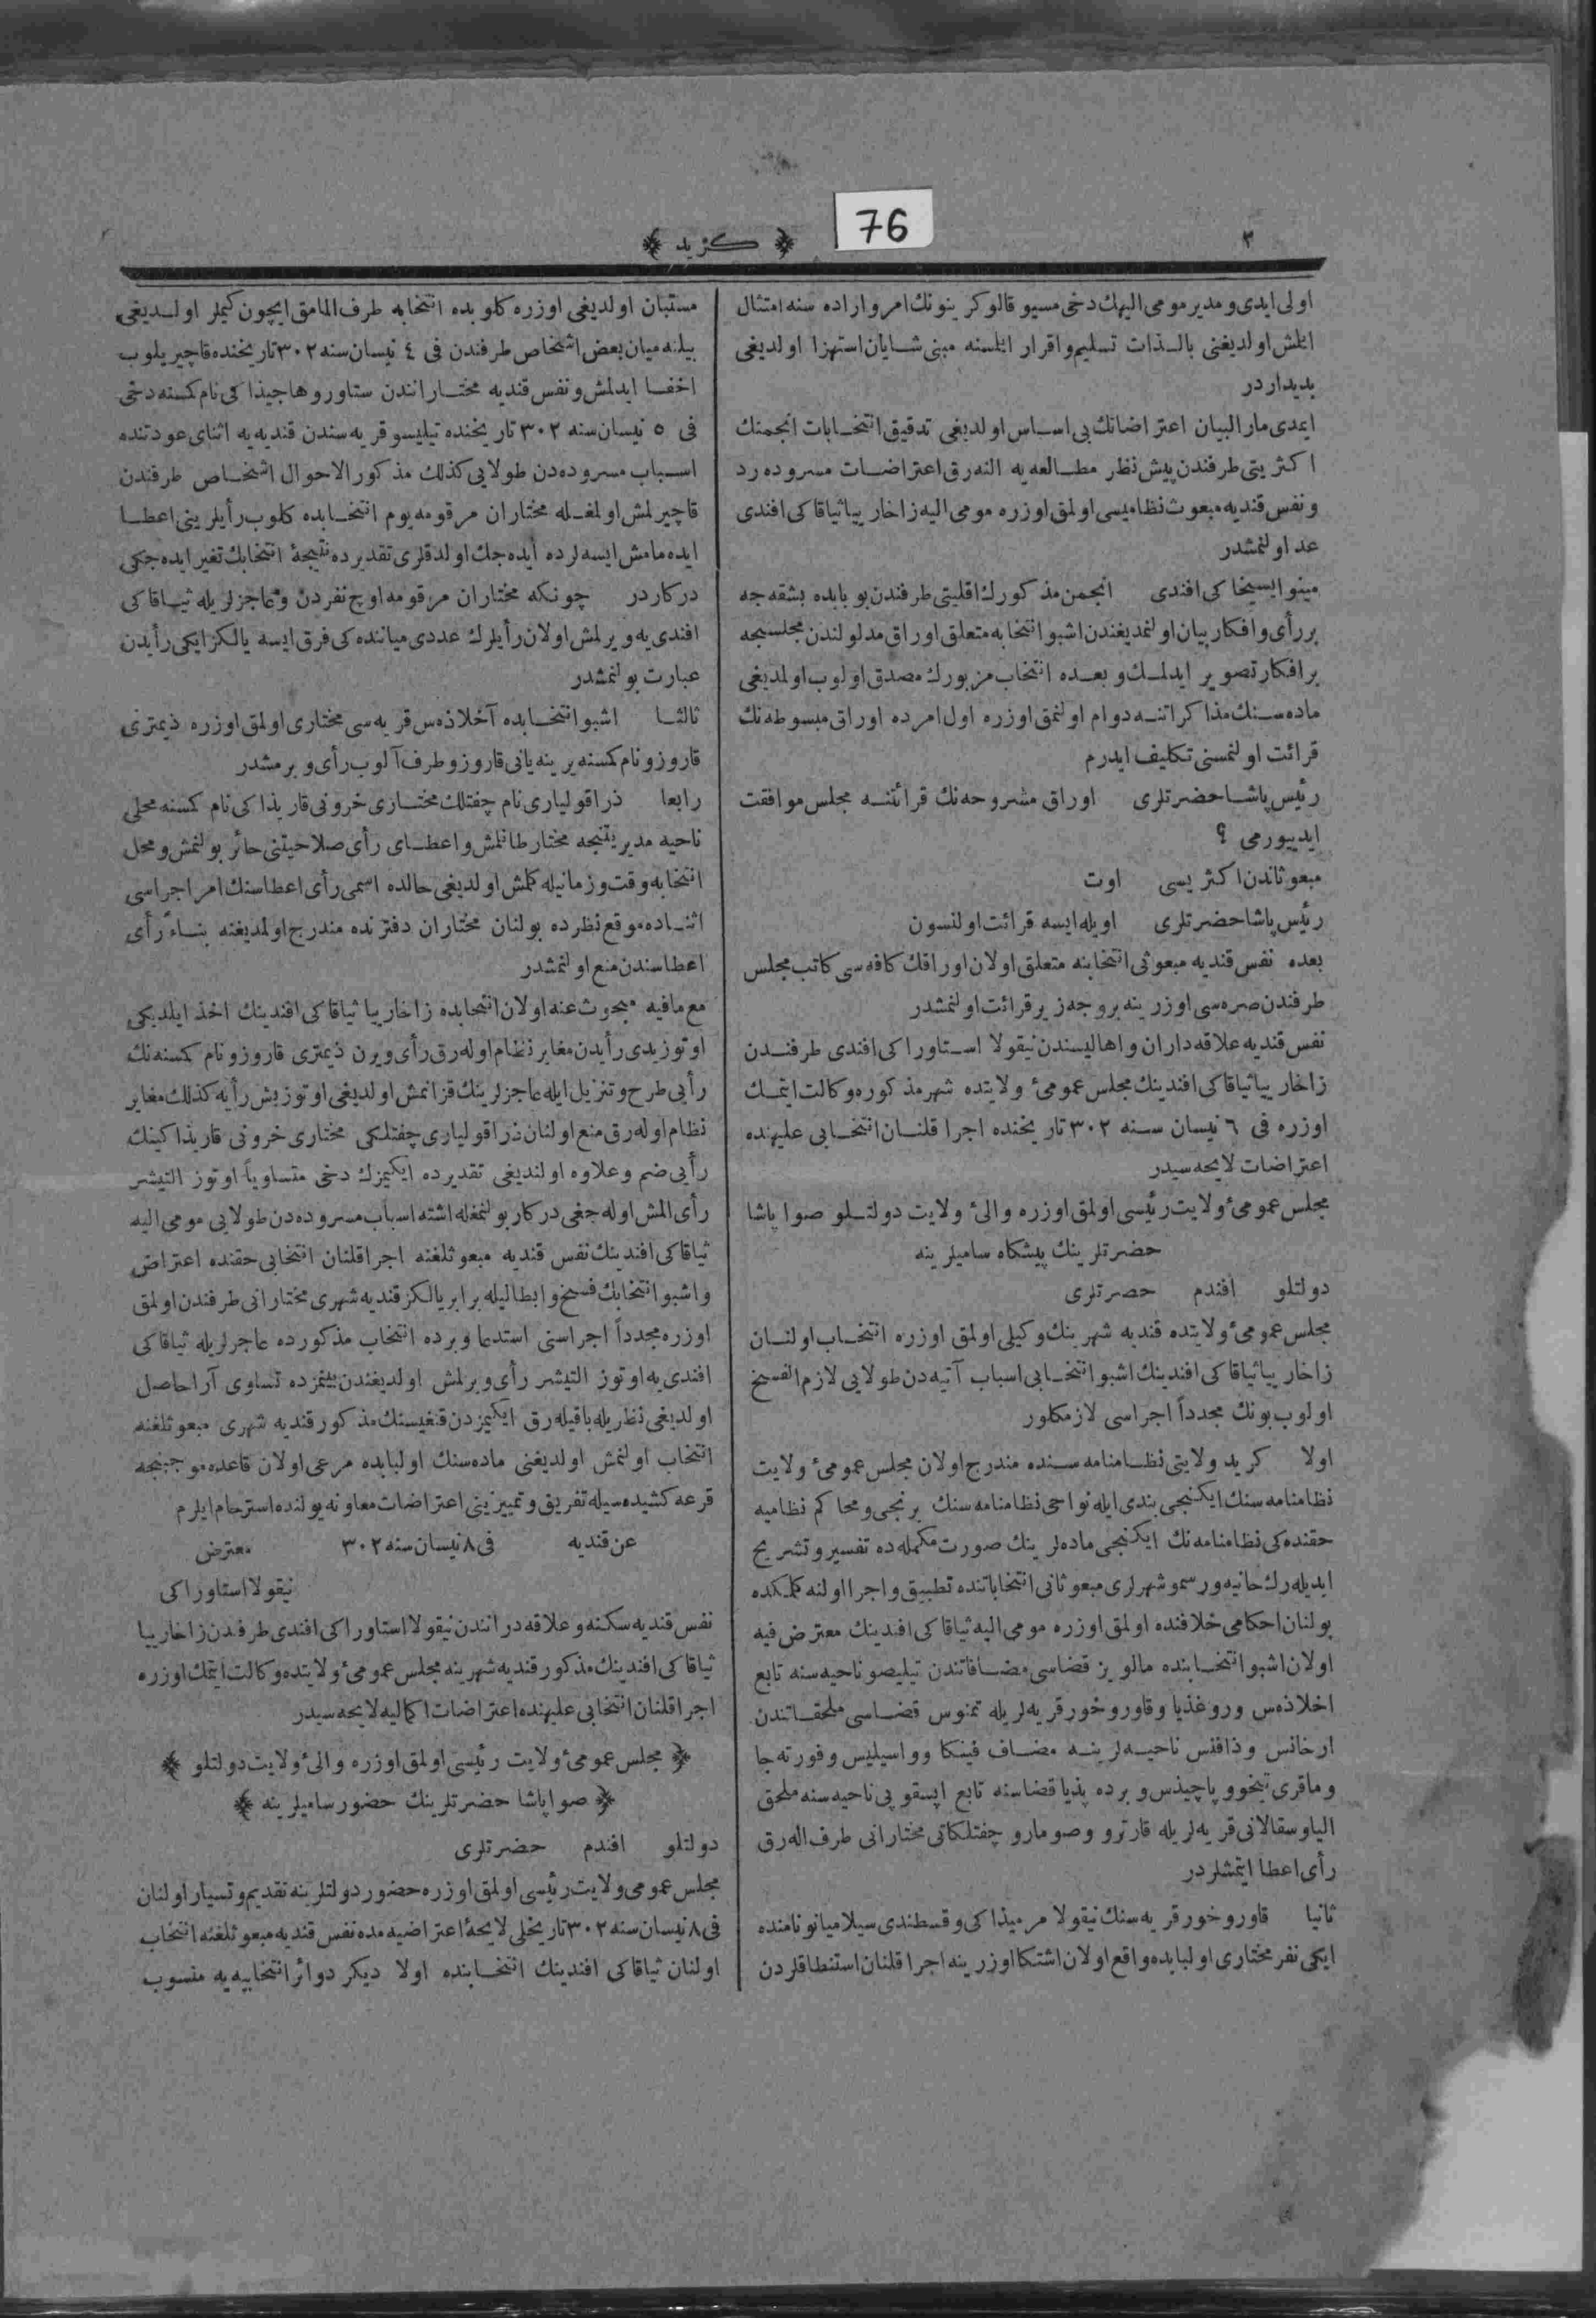 76
٢
﴿ كريد ﴾
اولى ايدى و مدير مومى اليهك دخى مسيو قالوكرينونك امر و اراده سنه امتثال
ايلمش اولديغنى بالـذات تسليم و اقرار ايلسنه مبنى شـايان استهزا اولديغى
بديداردر
ايمدى مار البيان اعتراضاتك بى اسـاس اولديغى تدقيق انتخـابات انجمننك
اكثريتى طرفندن پيش نظر مطـالعه يه النه رق اعتراضـات مسروده رد
و نفس قنديه مبعوث نظاميسى اولمق اوزره مومى اليه زاخار ييا ثياقاكى افندى
عد اولنمشدر
مينو ايسيخاكى افندى انجمن مذكورك اقليتى طرفندن بو بابده بشقه جه
بر رأى و افكار بيان اولنمديغندن اشبو انتخابه متعلق اوراق مدلولندن مجلسجه
بر افكار تصوير ايدلمـك و بعـده انتخاب مزبورك مصدق اولوب اولمديغى
ماده سـنك مذاكراتنـه دوام اولنمق اوزره اول امرده اوراق مبسوطه نك
قرائت اولنمسنى تكليف ايدرم
رئيس پاشـا حضرتلرى اوراق مشروحه نك قرائتنـه مجلس موافقت
ايدييورمى ؟
مبعوثاندن اكثريسى اوت
رئيس پاشا حضرتلرى اويله ايسه قرائت اولنسون
بعده نفس قنديه مبعوثى انتخابنه متعلق اولان اوراقك كافه سى كاتب مجلس
طرفندن صره سى اوزرينه بروجه زير قرائت اولنمشدر
نفس قنديه علاقه داران و اهاليسندن نيقولا اسـتاوراكى افندى طرفنـدن
زاخار ييا ثياقاكى افندينك مجلس عمومئ ولايتده شهر مذكوره وكالت ايتمـك
اوزره فى ٦ نيسان سـنه ٣٠٢ تاريخنده اجرا قلنـان انتخـابى عليهنده
اعتراضات لايحه سيدر
مجلس عمومئ ولايت رئيسى اولمق اوزره والئ ولايت دولتـلو صوا پاشا
حضرتلرينك پيشكاه ساميلرينه
دولتلو افندم حضرتلرى
مجلس عمومئ ولايتده قنديه شهرينك وكيلى اولمق اوزره انتخـاب اولنـان
زاخار ييا ثياقاكى افندينك اشبو انتخـابى اسباب آتيه دن طولايى لازم الفسخ
اولوب بونك مجدداً اجراسى لازمكلور
اولا كريد ولايتى نظـامنامه سـنده مندرج اولان مجلس عمومئ ولايت
نظامنامه سنك ايكنجى بندى ايله نواحى نظامنامه سنك برنجى و محاكم نظاميه
حقنده كى نظامنامه نك ايكنجى ماده لرينك صورت مكمله ده تفسير و تشريح
ايديله رك حانيه و رسمو شهرلرى مبعوثانى انتخاباتنده تطبيق و اجرا اولنه كلمكده
بولنان احكامى خلافنده اولمق اوزره مومى اليه ثياقاكى افندينك معترض فيه
اولان اشبو انتخـابنده مالويز قضاسى مضـافاتندن تيليصو ناحيه سنه تابع
اخلاذه س وروغذيا و قاوروخور قريه لريله تمنوس قضـاسى ملحقـاتندن
ارخانس و ذافنس ناحيـه لرينـه مضـاف فينكا و واسيليس و فورته جا
و ماقرى تيخو و پاچيذس و برده پذيا قضاسنه تابع اپسقوپى ناحيه سنه ملحق
اليا و سقالانى قريه لريله قارترو و صومارو چفتلكاتى مختارانى طرف اله رق
رأى اعطا ايتمشلردر
ثانيا قاوروخور قريه سنك نيقولا مرميذاكى و قسطندى سيلاميانو نامنده
ايكى نفر مختارى اولبابده واقع اولان اشتكا اوزرينه اجرا قلنان استنطاقلردن
مستبان اولديغى اوزره كلوبده انتخابه طرف المامق ايچون كيملر اولـديغى
بيلنه ميان بعض اشخاص طرفندن فى ٤ نيسان سنه ٣٠٢ تاريخنده قاچيريلوب
اخفـا ايدلمش و نفس قنديه مختـارانندن ستاورو هاجيذاكى نام كمسنه دخى
فى ٥ نيسان سنه ٣٠٢ تاريخنده تيليسو قريه سندن قنديه يه اثناى عودتنده
اسـباب مسروده دن طولايى كذلك مذكور الاحوال اشخـاص طرفندن
قاچيرلمش اولمغـله مختاران مرقومه يوم انتخـابده كلوب رأيلرينى اعطـا
ايده مامش ايسه لرده ايده جك اولدقلرى تقديرده نتيجۀ انتخابك تغير ايده جكى
دركاردر چونكه مختاران مرقومه اوچ نفردن و عاجزلريله ثيـاقاكى
افندى يه ويرلمش اولان رأيلرك عددى ميانده كى فرق ايسه يالكز ايكى رأيدن
عبارت بولنمشدر
ثالثـا اشبو انتخـابده آخلاذه س قريه سى مختارى اولمق اوزره ذيمترى
قاروزو نام كمسنه يرينه يانى قاروزو طرف آلوب رأى ويرمشدر
رابعا ذراقوليارى نام چفتلك مختـارى خرونى قاريذاكى نام كمسنه محلى
ناحيه مديريتنجه مختار طانلمش و اعطـاى رأى صلاحيتنى حائز بولنمش و محل
انتخابه وقت و زمانيله كلمش اولديغى حالده اسمى رأى اعطاسنك امر اجراسى
اثنـاده موقع نظرده بولنان مختاران دفترنده مندرج اولمديغنه بنـاءً رأى
اعطاسندن منع اولنمشدر
مع مافيه مبحوث عنه اولان انتخابده زاخار ييا ثياقاكى افندينك اخذ ايلديكى
اوتوز يدى رأيدن مغاير نظام اوله رق رأى ويرن ذيمترى قاروزو نام كمسنه نك
رأيى طرح و تنزيل ايله عاجزلرينك قزانمش اولديغى اوتوز بش رأيه كذلك مغاير
نظام اوله رق منع اولنان ذراقوليارى چفتلكى مختارى خرونى قاريذاكينك
رأيى ضم و علاوه اولنديغى تقديرده ايكيمزك دخى متساوياً اوتوز التيشر
رأى المش اوله جغى دركار بولنمغله اشته اسباب مسروده دن طولايى مومى اليه
ثياقاكى افندينك نفس قنديه مبعوثلغنه اجرا قلنان انتخابى حقنده اعتراض
و اشبو انتخابك فسخ و ابطاليله برابر يالكز قنديه شهرى مختارانى طرفندن اولمق
اوزره مجدداً اجراسنى استدعا و برده انتخاب مذكورده عاجزلريله ثياقاكى
افندى يه اوتوز التيشر رأى ويرلمش اولديغندن بينمزده تساوى آرا حاصل
اولديغى نظريله باقيله رق ايكيمزدن قنغيسنك مذكور قنديه شهرى مبعوثلغنه
انتخاب اولنمش اولديغنى ماده سنك اولبابده مرعى اولان قاعده موجبنجه
قرعه كشيده سيله تفريق و تمييزينى اعتراضات معاونه يولنده استرحام ايلرم
عن قنديه فى ٨ نيسان سنه ٣٠٢ معترض
نيقولا استاوراكى
نفس قنديه سكنه و علاقه دراندن نيقولا استاوراكى افندى طرفندن زاخار ييا
ثياقاكى افندينك مذكور قنديه شهرينه مجلس عمومئ ولايتده وكالت ايتمك اوزره
اجرا قلنان انتخابى عليهنده اعتراضات اكماليه لايحه سيدر
﴿ مجلس عمومئ ولايت رئيسى اولمق اوزره والئ ولايت دولتلو ﴾
﴿ صوا پاشا حضرتلرينك حضور ساميلرينه ﴾
دولتلو افندم حضرتلرى
مجلس عمومى ولايت رئيسى اولمق اوزره حضور دولتلرينه تقديم و تسيار اولنان
فى ٨ نيسان سنه ٣٠٢ تاريخلى لايحۀ اعتراضيه مده نفس قنديه مبعوثلغنه انتخاب
اولنان ثياقاكى افندينك انتخـابنده اولا ديكر دوائر انتخابيه يه منسوب